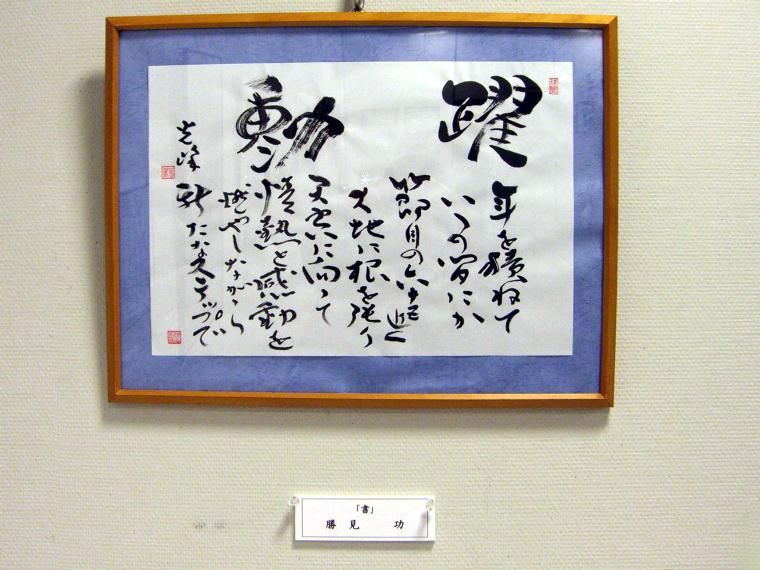 躍動
年を積ねて
いつの間にか
節目の
大地に根を張り
天空に向って
情熱と感動を
燃やしながら
新たなステップで
光峰
「書」
勝見 功